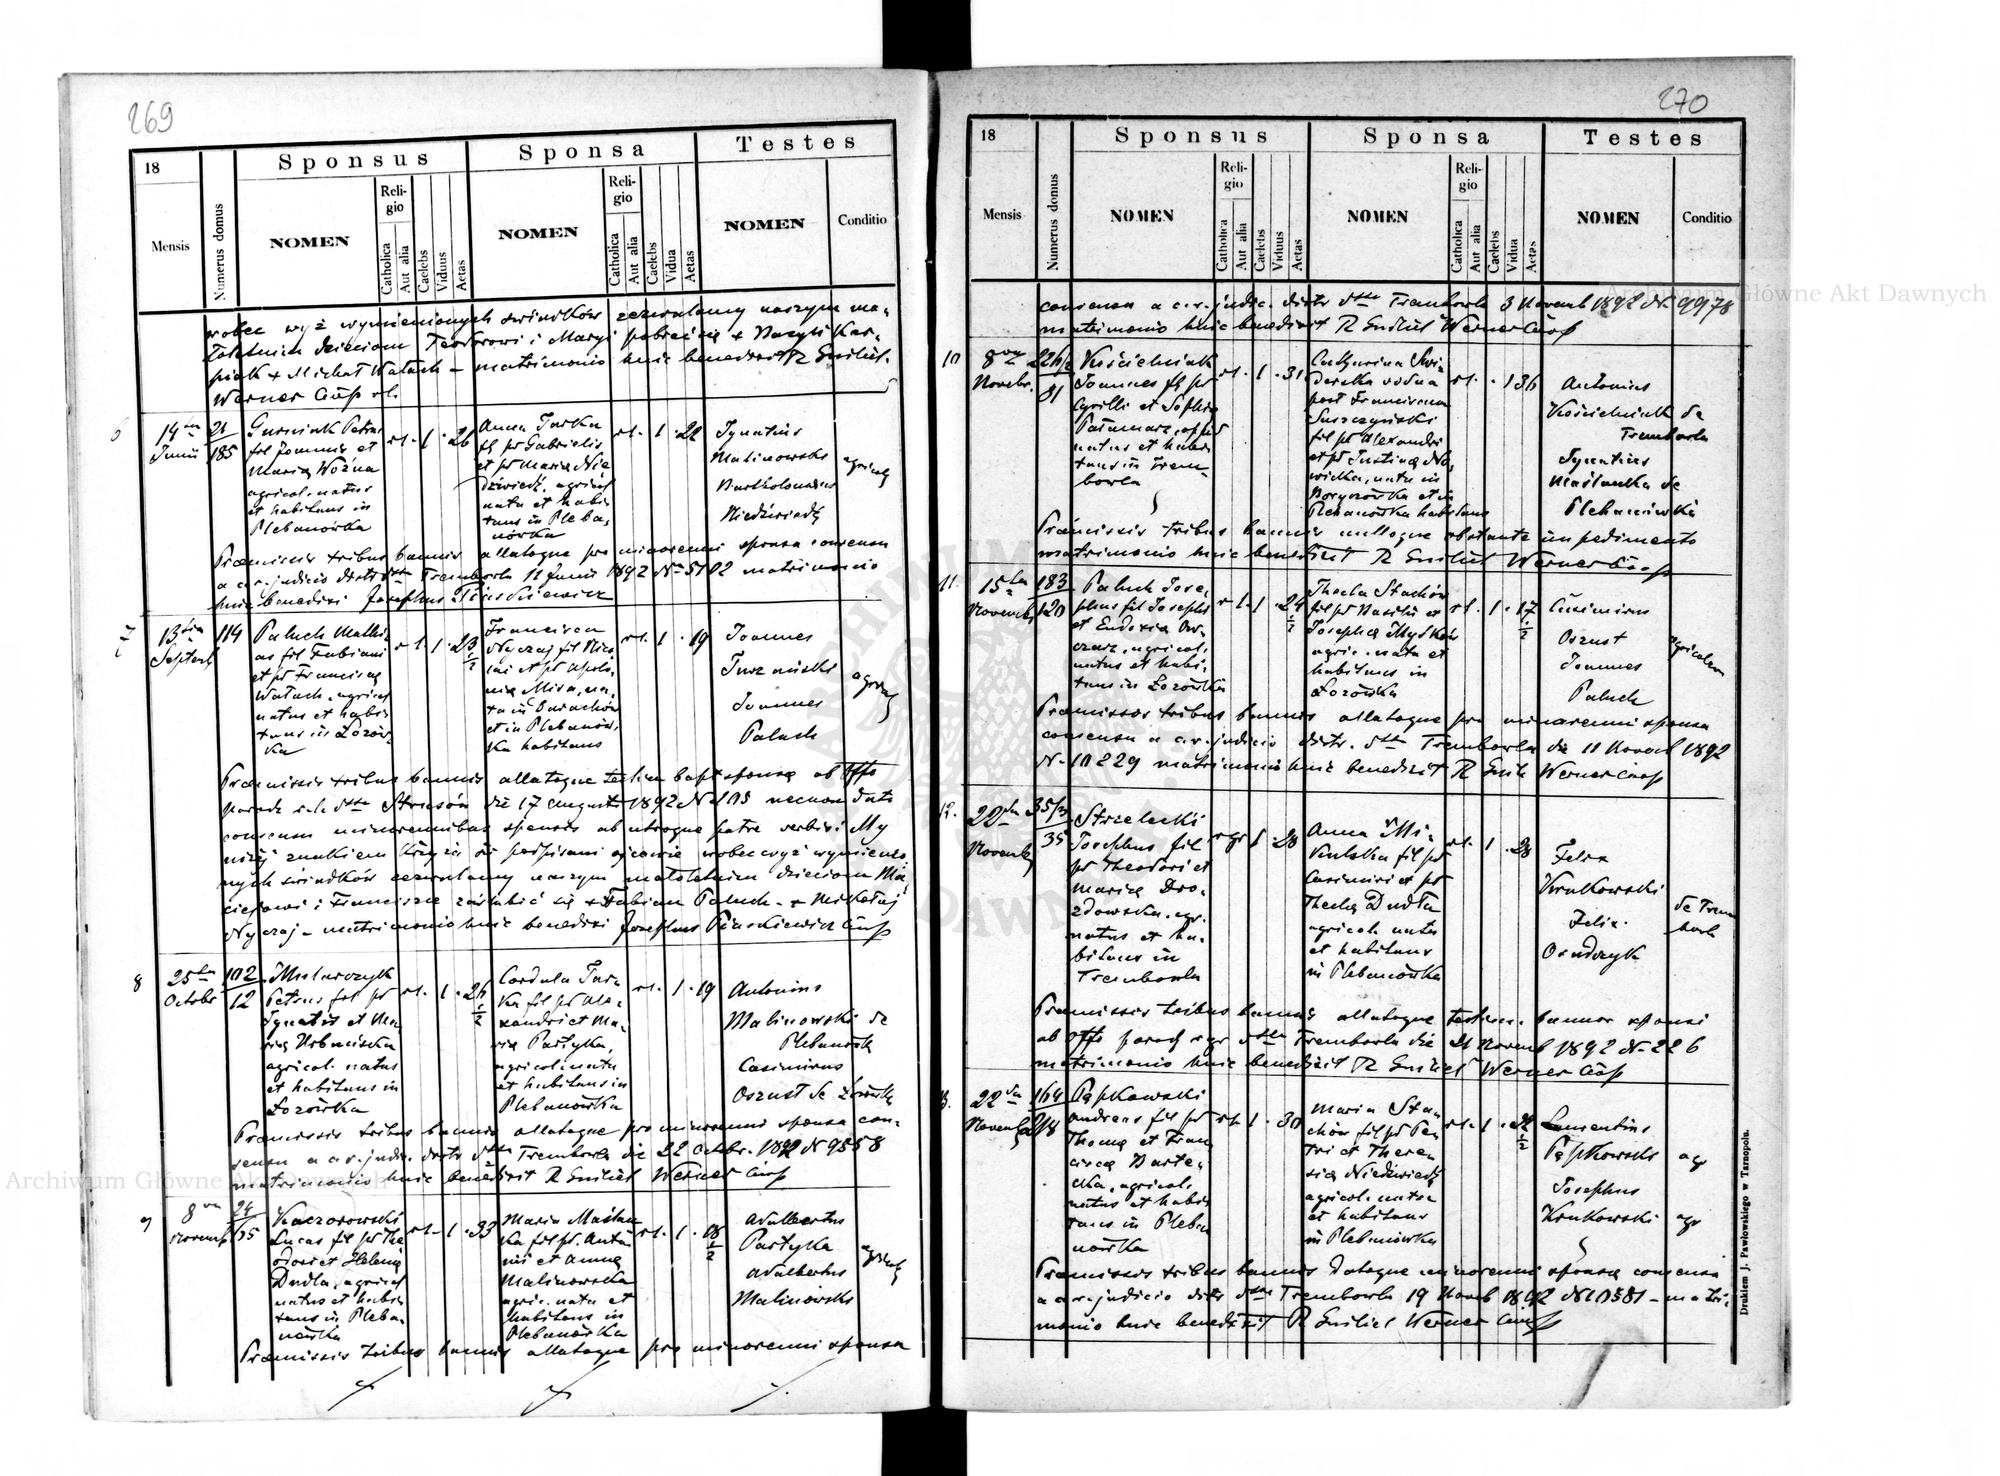 269
18
Sponsus
Sponsa
Testes
Mensis
Numerus domus
NOMEN
Religio
Catholica
Aut alia
Caelebs
Viduus
Aetas
NOMEN
Religio
Catholica
Aut alia
Caelebs
Vidua
Aetas
NOMEN
Conditio
wobec wyż wymienionych świadków zezwalamy naszym ma-
łoletnim dzieciom Teodorowi i Maryi pobrać się +
+ Michał Wałach - matrimonio huic benedixit R Emiliet.
Werner Coop
6
14
Junii
21
185
Petrus
fil Joannis et
Maria Woźna
agricol. natus
et habitans in
Plebanówka
rl. 1 . 26
Anna Turka
fil p Gabrielis
et p Maria Nie-
dźwiedź. agricol
nata et habi-
tans in Pleba-
nówka
rl. 1 . 22
Ignatius
Malinowski
Bartholomaeus
Niedźwiedź
agricol
Praemissis tribus bannis allatoque pro minorenni sponsa consensu
a c.r. judicio distr Trembowla 11 Junii 1892 N 5102 matrimonio
huic benedixi Josephus
7
13
Septemb
114
Paluch Mathi-
as fil Fabiani
et p Francisca
Wałach. agricol
natus et habi-
tans in Łozów-
ka
rl. 1 . 23 1/2
Francisca
Nyczaj fil Nico-
lai et p Apolo-
nia Misa, na-
ta in Darachów
et in Plebanów-
ka habitans
rl. 1 . 19
Joannes
Turzański
Joannes
Paluch
agricol
Praemissis tribus bannis allatoque testim bapt sponsa ab Offo
paroch r.l. Strusów die 17 August 1892 N 105 necnon dato
consensu minorennibus sponsis ab utroque patre verbis: My
niżej znakiem krzyża św podpisani ojcowie wobec wyż wymienio-
nych świadków zezwalamy naszym małoletnim dzieciom Ma-
ciejowi i Franciszce zaślubić się + Fabian Paluch - + Mikołaj
Nyczaj - matrimonio huic benedixi Josephus Piaskiewicz Coop
8
25
Octobr
102
12
Petrus fil p
Ignatii et Ma-
ria Urbańska
agricol. natus
et habitans in
Łozówka
rl. 1 . 26 1/2
Cordula Tur-
ka fil p Ale-
xandri et Ma-
ria Partyka,
agricol. nata
et habitans in
Plebanówka
rl. 1 . 19
Antonius
Malinowski de
Plebanówk
Casimirus
Oszust de Łozówka
Praemissis tribus bannis allatoque pro minorenni sponsa con-
sensu a c.r. judic. distr Trembowla die 22 Octobr. 1892 N 9558
matrimonio huic benedixit R Emiliet Werner Coop
9
8
Novemb
24
Kaczorowski
Lucas fil p The-
odori et Helena
Dudła, agricol
natus et habi-
tans in Pleba-
nówka
rl. 1 . 33
Maria Maślan-
ka fil p. Anto-
nii et Anna
Malinowska
agric. nata et
habitans in
Plebanówka
rl. 1 . 18 1/2
Adalbertus
Partyka
Adalbertus
Malinowski
agricol
Praemissis tribus bannis allatoque pro minorenni sponsa
270
18
Sponsus
Sponsa
Testes
Mensis
Numerus domus
NOMEN
Religio
Catholica
Aut alia
Caelebs
Viduus
Aetas
NOMEN
Religio
Catholica
Aut alia
Caelebs
Vidua
Aetas
NOMEN
Conditio
consensu a c.r. judic. distr Trembowla 3 Novemb 1892 N 9978
matrimonio huic benedixit R Emiliet Werner Coop
10
8
Novebr.
81
Kościelniak
Joannes fil p
Cyrilli et Sophia
natus et habi-
tans in Trem-
bowla
rl. 1 . 31
Catharina Świ-
derska vidua
post Franciscum
Suszczyński
fil p Alexandri
et p Justina No-
wicka, nata in
Boryczówka et in
Plebanówka habitans
rl. . 1 36
Antonius
Kościelniak de
Trembowla
Ignatius
Maślanka de
Plebanówka
Praemissis tribus bannis nulloque obstante impedimento
matrimonio huic benedixit R Emiliet Werner Coop
11.
15
Novemb
183
120
Paluch Jose-
phus fil Josephi
et Eudoxia Ow-
czarz, agricol.
natus et habi-
tans in Łozówka
r l . 1 . 24 1/2
Thecla Stachów
fil p Basilii et
Josepha Myśków
agric. nata et
habitans in
Łozówka
rl. 1 . 17 1/2
Casimirus
Oszust
Joannes
Paluch
agricolae
Praemissis tribus bannis allatoque pro minorenni sponsa
consensu a c.r. judicio distr. Trembowla die 11 Novemb 1892
N. 10229 matrimonio huic benedixit R Emili Werner Coop
12.
22
Novemb
35
Strzelecki
Josephus fil
p Theodori et
Maria Dro-
zdowska. agr.
natus et ha-
bitans in
Trembowla
rgr 1 . 28
Anna Mi-
kulska fil p
Casimiri et p
Thecla Dudła
agricol. nata
et habitans
in Plebanówka
rl. 1 . 28
Felix
Krukowski
Felix
Osadczyk
de Trem
bowla
Praemissis tribus bannis allatoque testim. bannor sponsi
ab Offo paroch r gr Trembowla die 21 Novemb 1892 N. 226
matrimonio huic benedixit R Emiliet Werner Coop
13.
22
Novemb
164
218
Pępkowski
Andreas fil p
Thoma et Fran-
cisca Barte-
cka, agricol.
natus et habi-
tans in Pleba-
nówka
rl. 1 . 30
Maria Sta-
chów fil p Pe-
tri et There-
sia Niedźwiedź
agricol. nata
et habitans
in Plebanówka
rl. 1 . 22 1/2
Laurentius
Pępkowski agr
Josephus
Krukowski agr
Praemissis tribus bannis datoque minorenni sponsa consensu
a c.r. judicio distr Trembowla 19 Novemb 1892 N 10581 - matri-
monio huic benedixit R Emiliet Werner Coop
Drukiem J. Pawłowskiego w Tarnopolu.
Archiwum Główne Akt Dawnych
Archiwum Główne Akt Dawnych